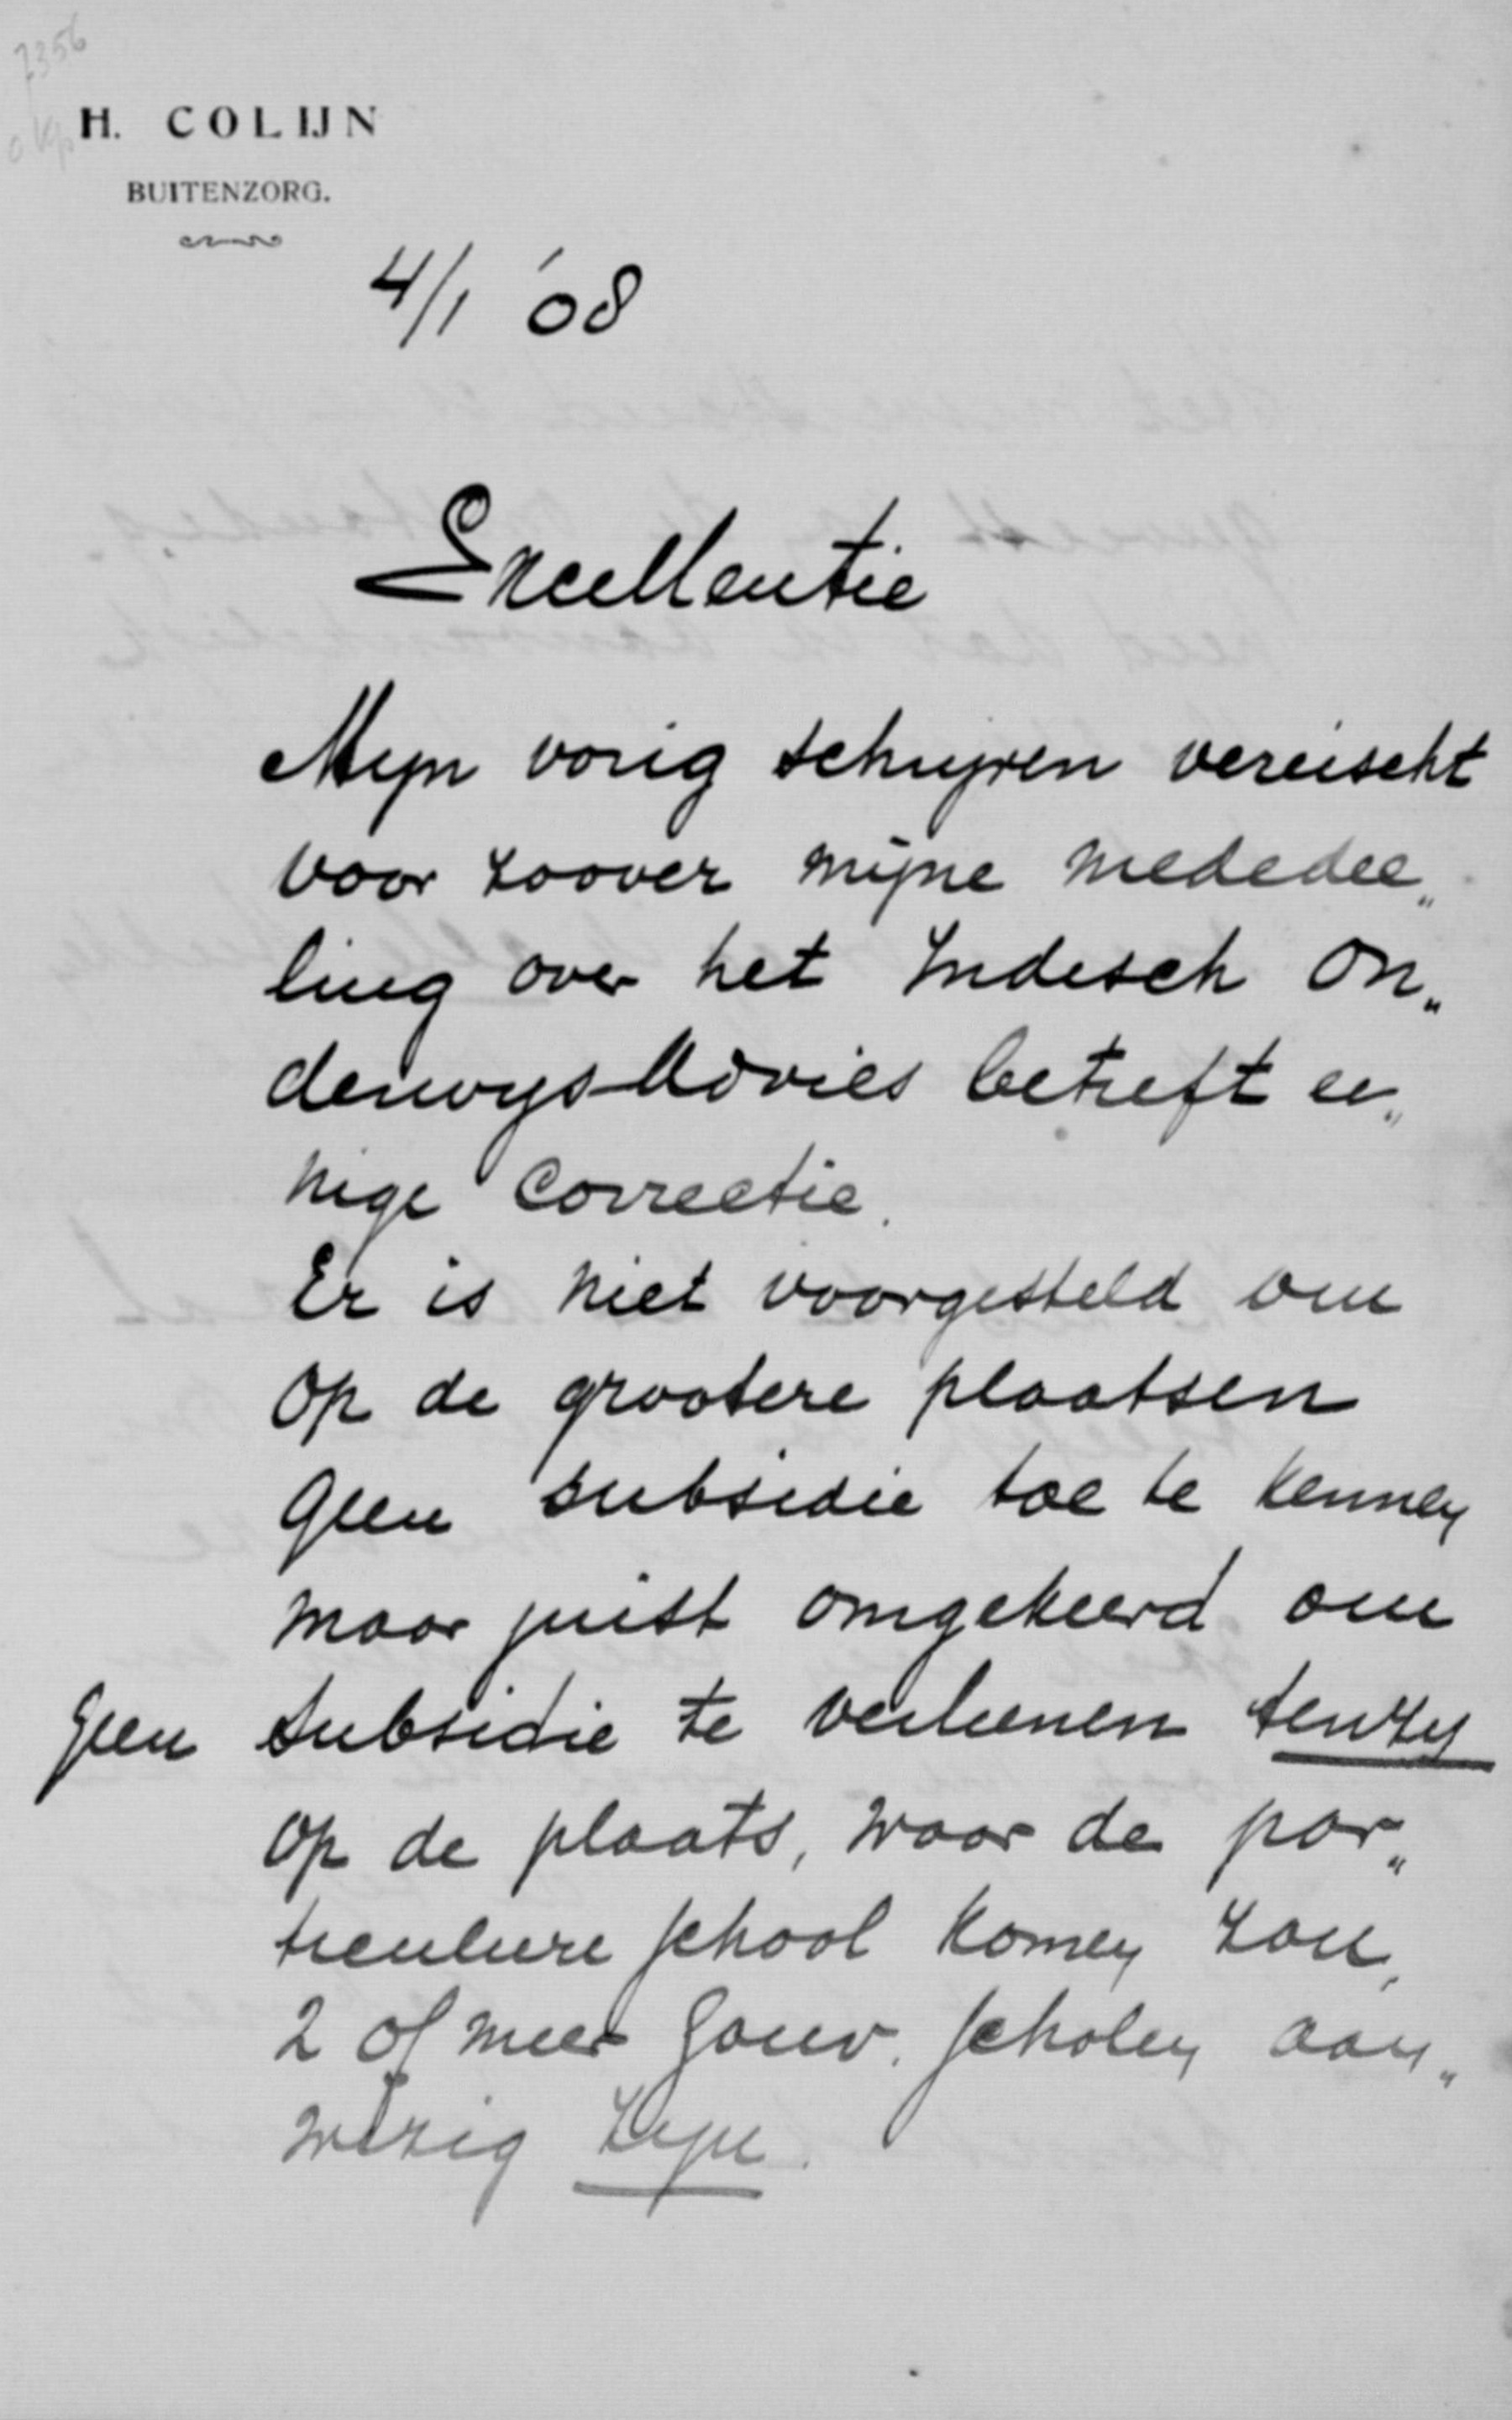 7356
H. COLIJN
BUITENZORG.
4/1 '08
Excellentie
Mijn vorig schrijven vereischt
voor zoover mijne mededee„
ling over het Indisch On„
derwijs Advies betreft ee„
nige correctie.
Er is niet voorgesteld om
op de grootere plaatsen
geen subsidie toe te kennen
maar juist omgekeerd om
geen subsidie te verleenen tenzij
op de plaats, waar de par„
ticuliere school komen zou,
2 of meer Gouv. scholen aan„
wezig zijn.